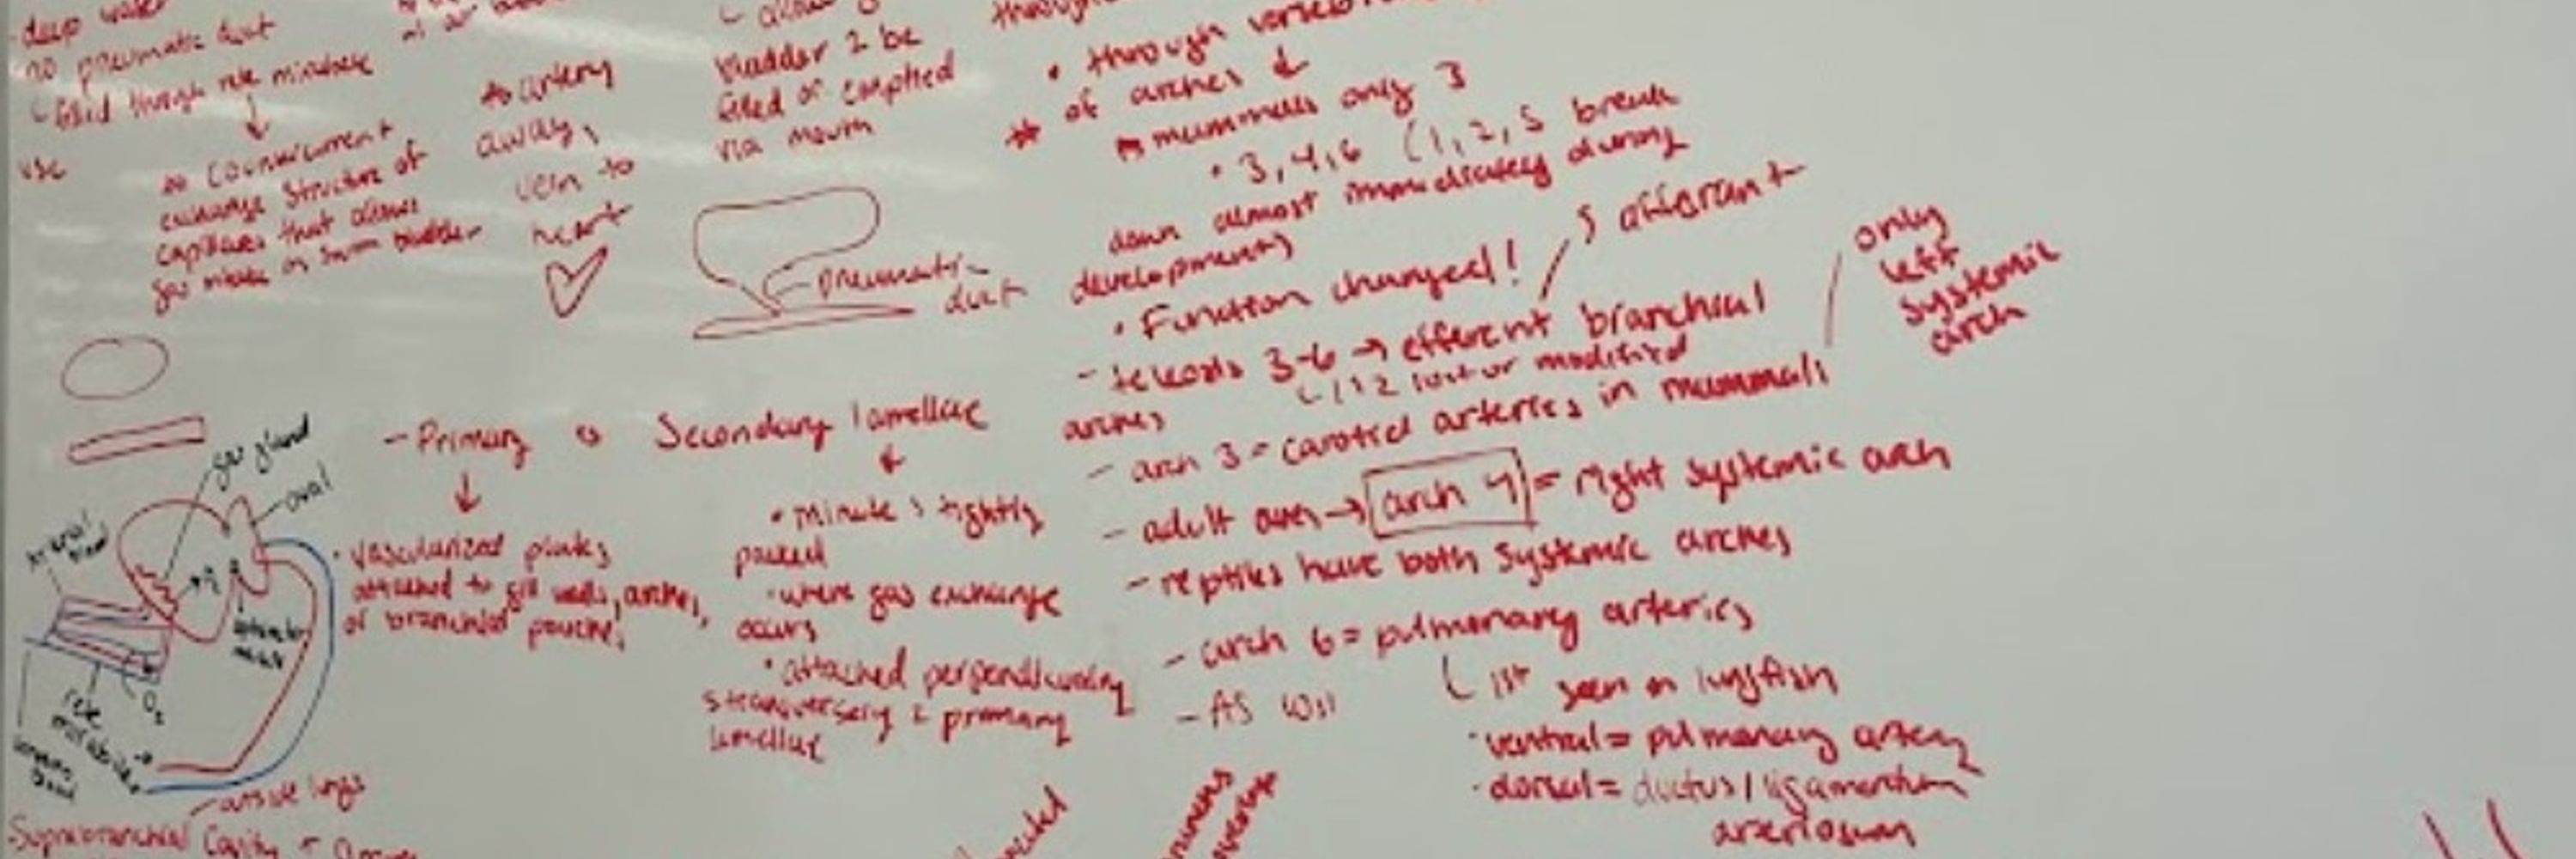 deep water
no pneumatic duct
filled through rete mirabile
use
countercurrent
exchange structure of
capillaries that allows
gas intake in swim bladder
to artery
away,
vein to
heart
bladder 2 be
filled or emptied
via mouth
pneumatic
duct
gas gland
oval
arterial
blood
O₂
rete
mirabile
- Primary
Secondary lamellae
• vascularized plates
attached to gill walls, arches,
or branchial pouches
• Minute & tightly
packed
• where gas exchange
occurs
• attached perpendicularly
& transversely 2 primary
lamellae
Suprabranchial Cavity
through
• through
of arches ↓
mammals only 3
• 3, 4, 6 (1, 2, 5 break
down almost immediately during
development)
• Function changed!
& afferent
- teleosts 3-6 → efferent branchial
arches
1, 2 lost or modified
- arch 3 = carotid arteries in mammals
only
left
systemic
arch
- adult → arch 4 = right systemic arch
- reptiles have both systemic arches
- arch 6 = pulmonary arteries
1st seen in lungfish
- AS Will
• ventral = pulmonary artery
• dorsal = ductus / ligamentum
arteriosum